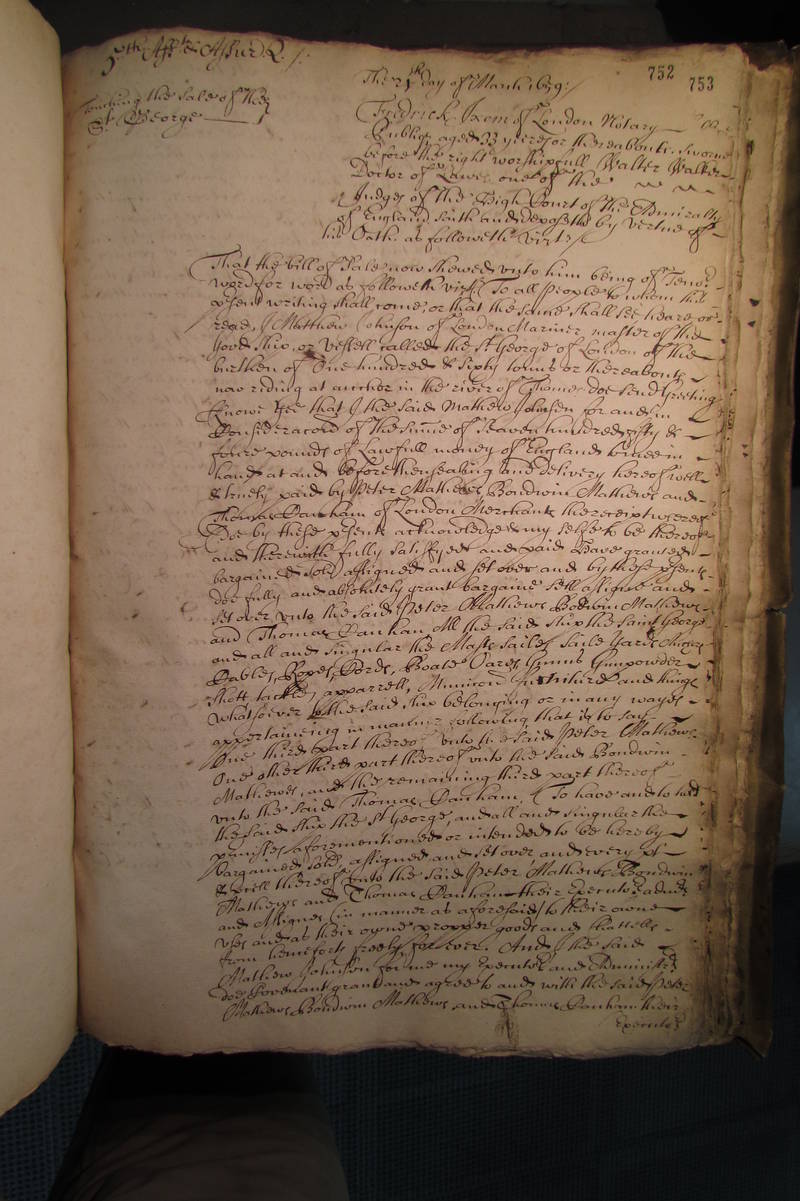 752 753
Touching the sale of the
St George
The 21th day of March 1659:/
Fredrick Ixem of London Notary
Publiq aged 33 yeeres or thereabouts sworne
before the right worshipfull Walter Walker
Doctor of Lawes one of the
Judges of the High Court of the Admiralty
of England saith and deposeth by vertue of
his Oath as followeth vizt:/
That the bill of Sale now shewed unto him being of Tenor
word for word as followeth vizt To all People to whom this
psent writing shall come, or that the same shall see heare or
read, I Matthew Johnson of London Mariner, master of the
good ship or vessell called the St George of London of the
burthen of One hundred & sixty tonns or thereabouts
now riding at anchor in the river of Thames doe send Greeting
Knowe Yee that I the said Mathew Johnson for and in
Consideracon of the summe of Seaven hundred fifty &
foure pounds of Lawfull money of England to mee in
hand at and before thensealing and delivery hereof well
& truely paid by Peter Mathewes Bondwin Mathews and
Thomas Canham of London Merchants the receipt whereof
I doe by these psents acknowledge & my selfe to be thereof
and therewith fully satisfyed and paid Have granted
bargained sold assigned and set over and by these psents
doe fully and absolutely grant bargaine sell assigne and
set over unto the said Peter Mathews Bondwin Mathews
and Thomas Canham All the said ship the Saint George
and all and singular the Masts Sailes Saile Yards Anchors
Cables, Ropes, Cords, Boate Oares Gunns Gunpowder
Shott tackle, apparrell, Municon furniture and things
whatsoever to the said ship belonging or in any wayes
appertaineing in manner following that is to say
One third part thereof unto the said Peter Mathews
One other third part thereof unto the said Bondwin
Mathewes, and the remaining third part thereof
unto the said Thomas Canham, To have and to hold
the said ship the St George, and all and singular the
pmisses aforementioned or intended to be hereby
bargained sold, assigned and set over and every pt
& pcell thereof unto the said Peter Mathews Bondwin
Mathews and Thomas Canham their Executors admrs
and Assignes (in manner as aforesaid) to their owne
uses and as their owne propper goods and chattells
from henceforth freely for ever. And I the said
Mathew Johnson for me my Executors and Administrs
doe Covenant grant and agree to and with the said Peter
Mathews Bondwin Mathews and Thomas Canham their
Executors